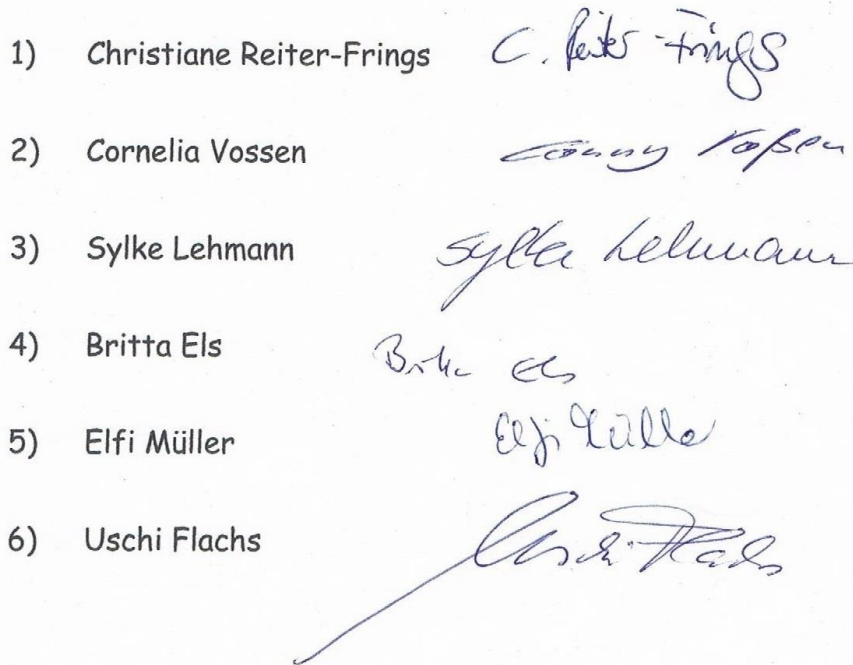 1) Christiane Reiter-Frings C. Reiter-Frings
2) Cornelia Vossen Conny Voßen
3) Sylke Lehmann Sylke Lehmann
4) Britta Els Britta Els
5) Elfi Müller Elfi Müller
6) Uschi Flachs Uschi Flachs